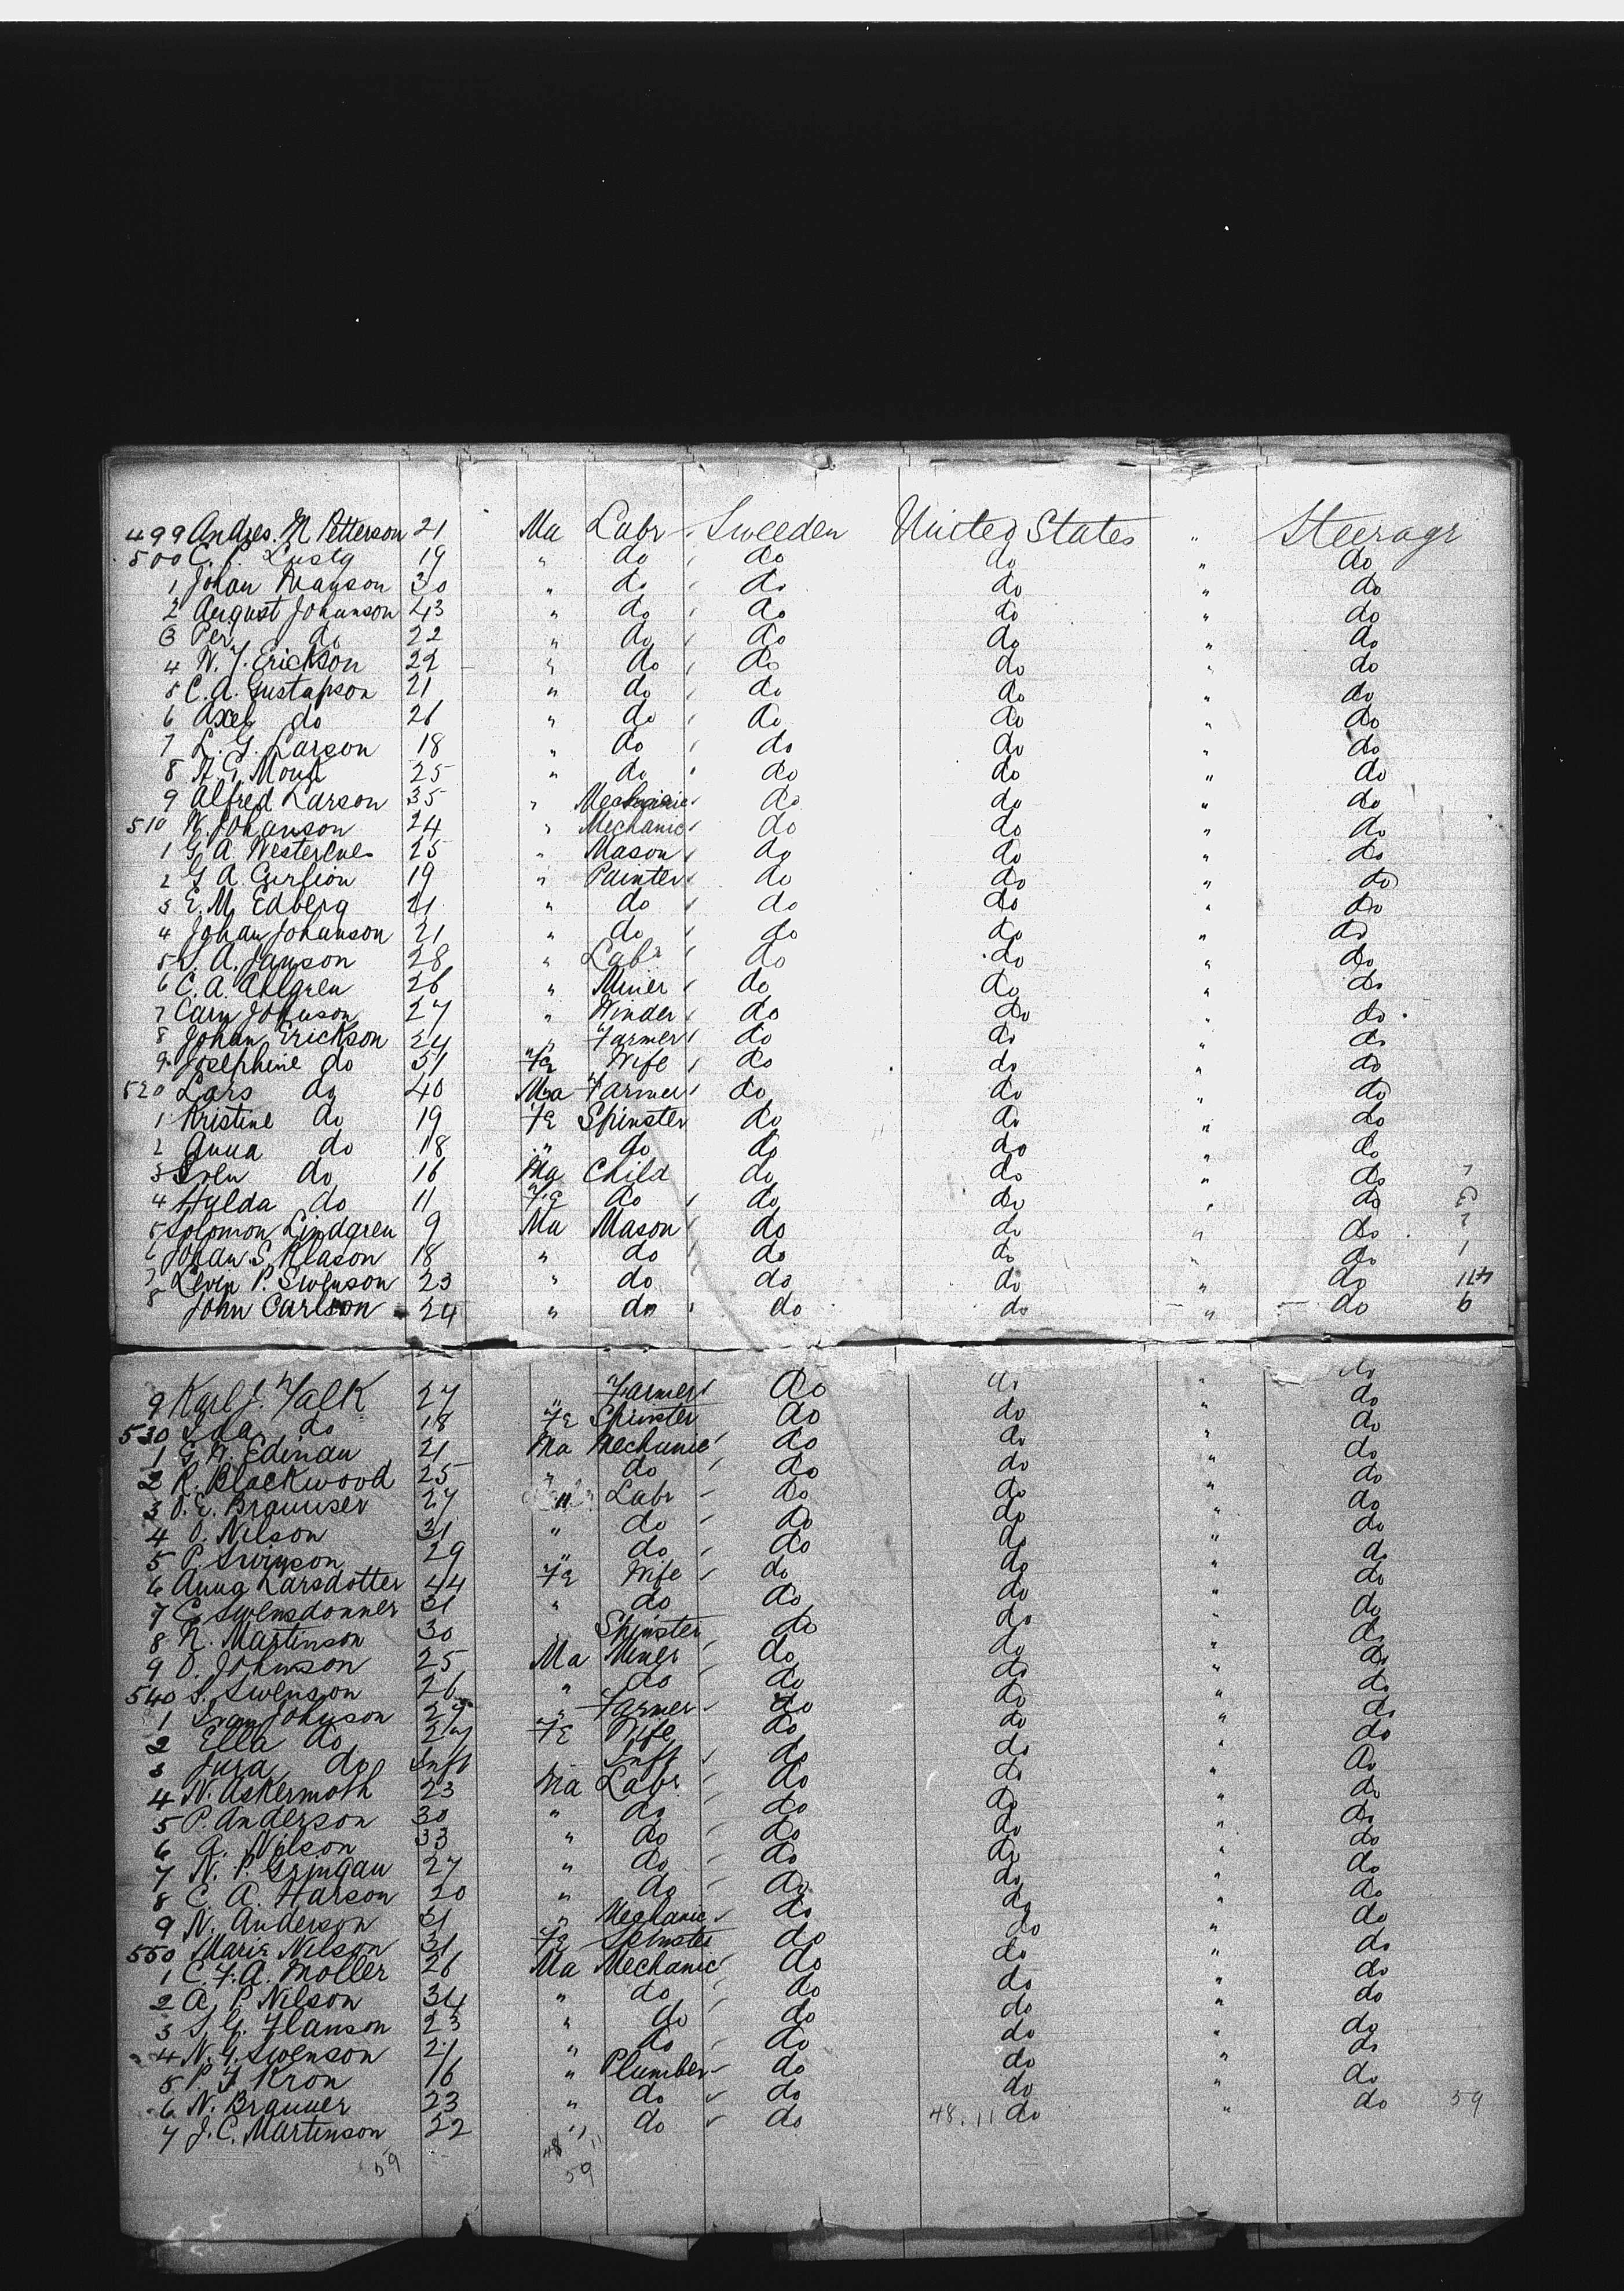 499 Andres. M Petterson 21 Ma Labr Sweeden United States " Steerage
500 C. P. Lustg 19 " do do do " do
1 Johan Magson 30 " do do do " do
2 August Johanson 43 " do do do " do
3 Per do 22 " do do do " do
4 N. J. Erickson 22 " do do do " do
5 C. A. Gustafson 21 " do do do " do
6 Axel do 26 " do do do " do
7 L. G. Larson 18 " do do do " do
8 A. G. 25 " do do do " do
9 Alfred Larson 35 " Mechanic do do " do
510 N. Johanson 24 " Mechanic do do " do
1 G. A. 25 " Mason do do " do
2 G. A. 19 " Painter do do " do
3 E. M. Edberg 21 " do do do " do
4 Johan Johanson 21 " do do do " do
5 S. A. Janson 28 " Labr do do " do
6 C. A. Ahlgren 26 " Miner do do " do
7 Carn Johnson 27 " Winder do do " do
8 Johan Erickson 54 " Farmer do do " do
9 Josephine do 51 Fe Wife do do " do
520 Lars do 40 Ma Farmer do do " do
1 Kristine do 19 Fe Spinster do do " do
2 Anna do 18 " do do do " do
3 Sven do 16 Ma Child do do " do
4 Hylda do 11 Fe do do do " do
5 Solomon Lindgren 9 Ma Mason do do " do
6 Johan S. Klason 18 " do do do " do
7 Leven P. Swenson 23 " do do do " do
8 John Carlson 24 " do do do " do
9 Karl J. Falk 27 " Farmer do do " do
530 Ida do 18 Fe Spinster do do " do
1 G. A. Edman 21 Ma Mechanic do do " do
2 R. Blackwood 25 " do do do " do
3 O. E. Braunser 27 " Labr do do " do
4 O. Nilson 31 " do do do " do
5 P. Swinson 29 " do do do " do
6 Anna Larsdotter 44 Fe Wife do do " do
7 C. Swensdonner 31 " do do do " do
8 N. Martinson 30 " Spinster do do " do
9 O. Johnson 25 Ma Miner do do " do
540 S. Swenson 26 " do do do " do
1 Ivan Johnson 29 " Farmer do do " do
2 Ella do 27 Fe Wife do do " do
3 Jura do Inft Inft do do " do
4 N. Askermoth 23 Ma Labr do do " do
5 P. Anderson 30 " do do do " do
6 A. Nilson 33 " do do do " do
7 N. P. Gringau 27 " do do do " do
8 C. A. Harson 20 " do do do " do
9 N. Anderson 31 " Mechanic do do " do
550 Marie Nilson 31 Fe Spinster do do " do
1 C. F. A. Moller 26 Ma Mechanic do do " do
2 A. P. Nilson 34 " do do do " do
3 S. G. Hanson 23 " do do do " do
4 N. G. Swenson 21 " do do do " do
5 P. J. Kron 16 " Plumber do do " do
6 N. Brauner 23 " do do do " do 59
7 J. C. Martinson 22 " do do 48.11 do
59 48 11
59